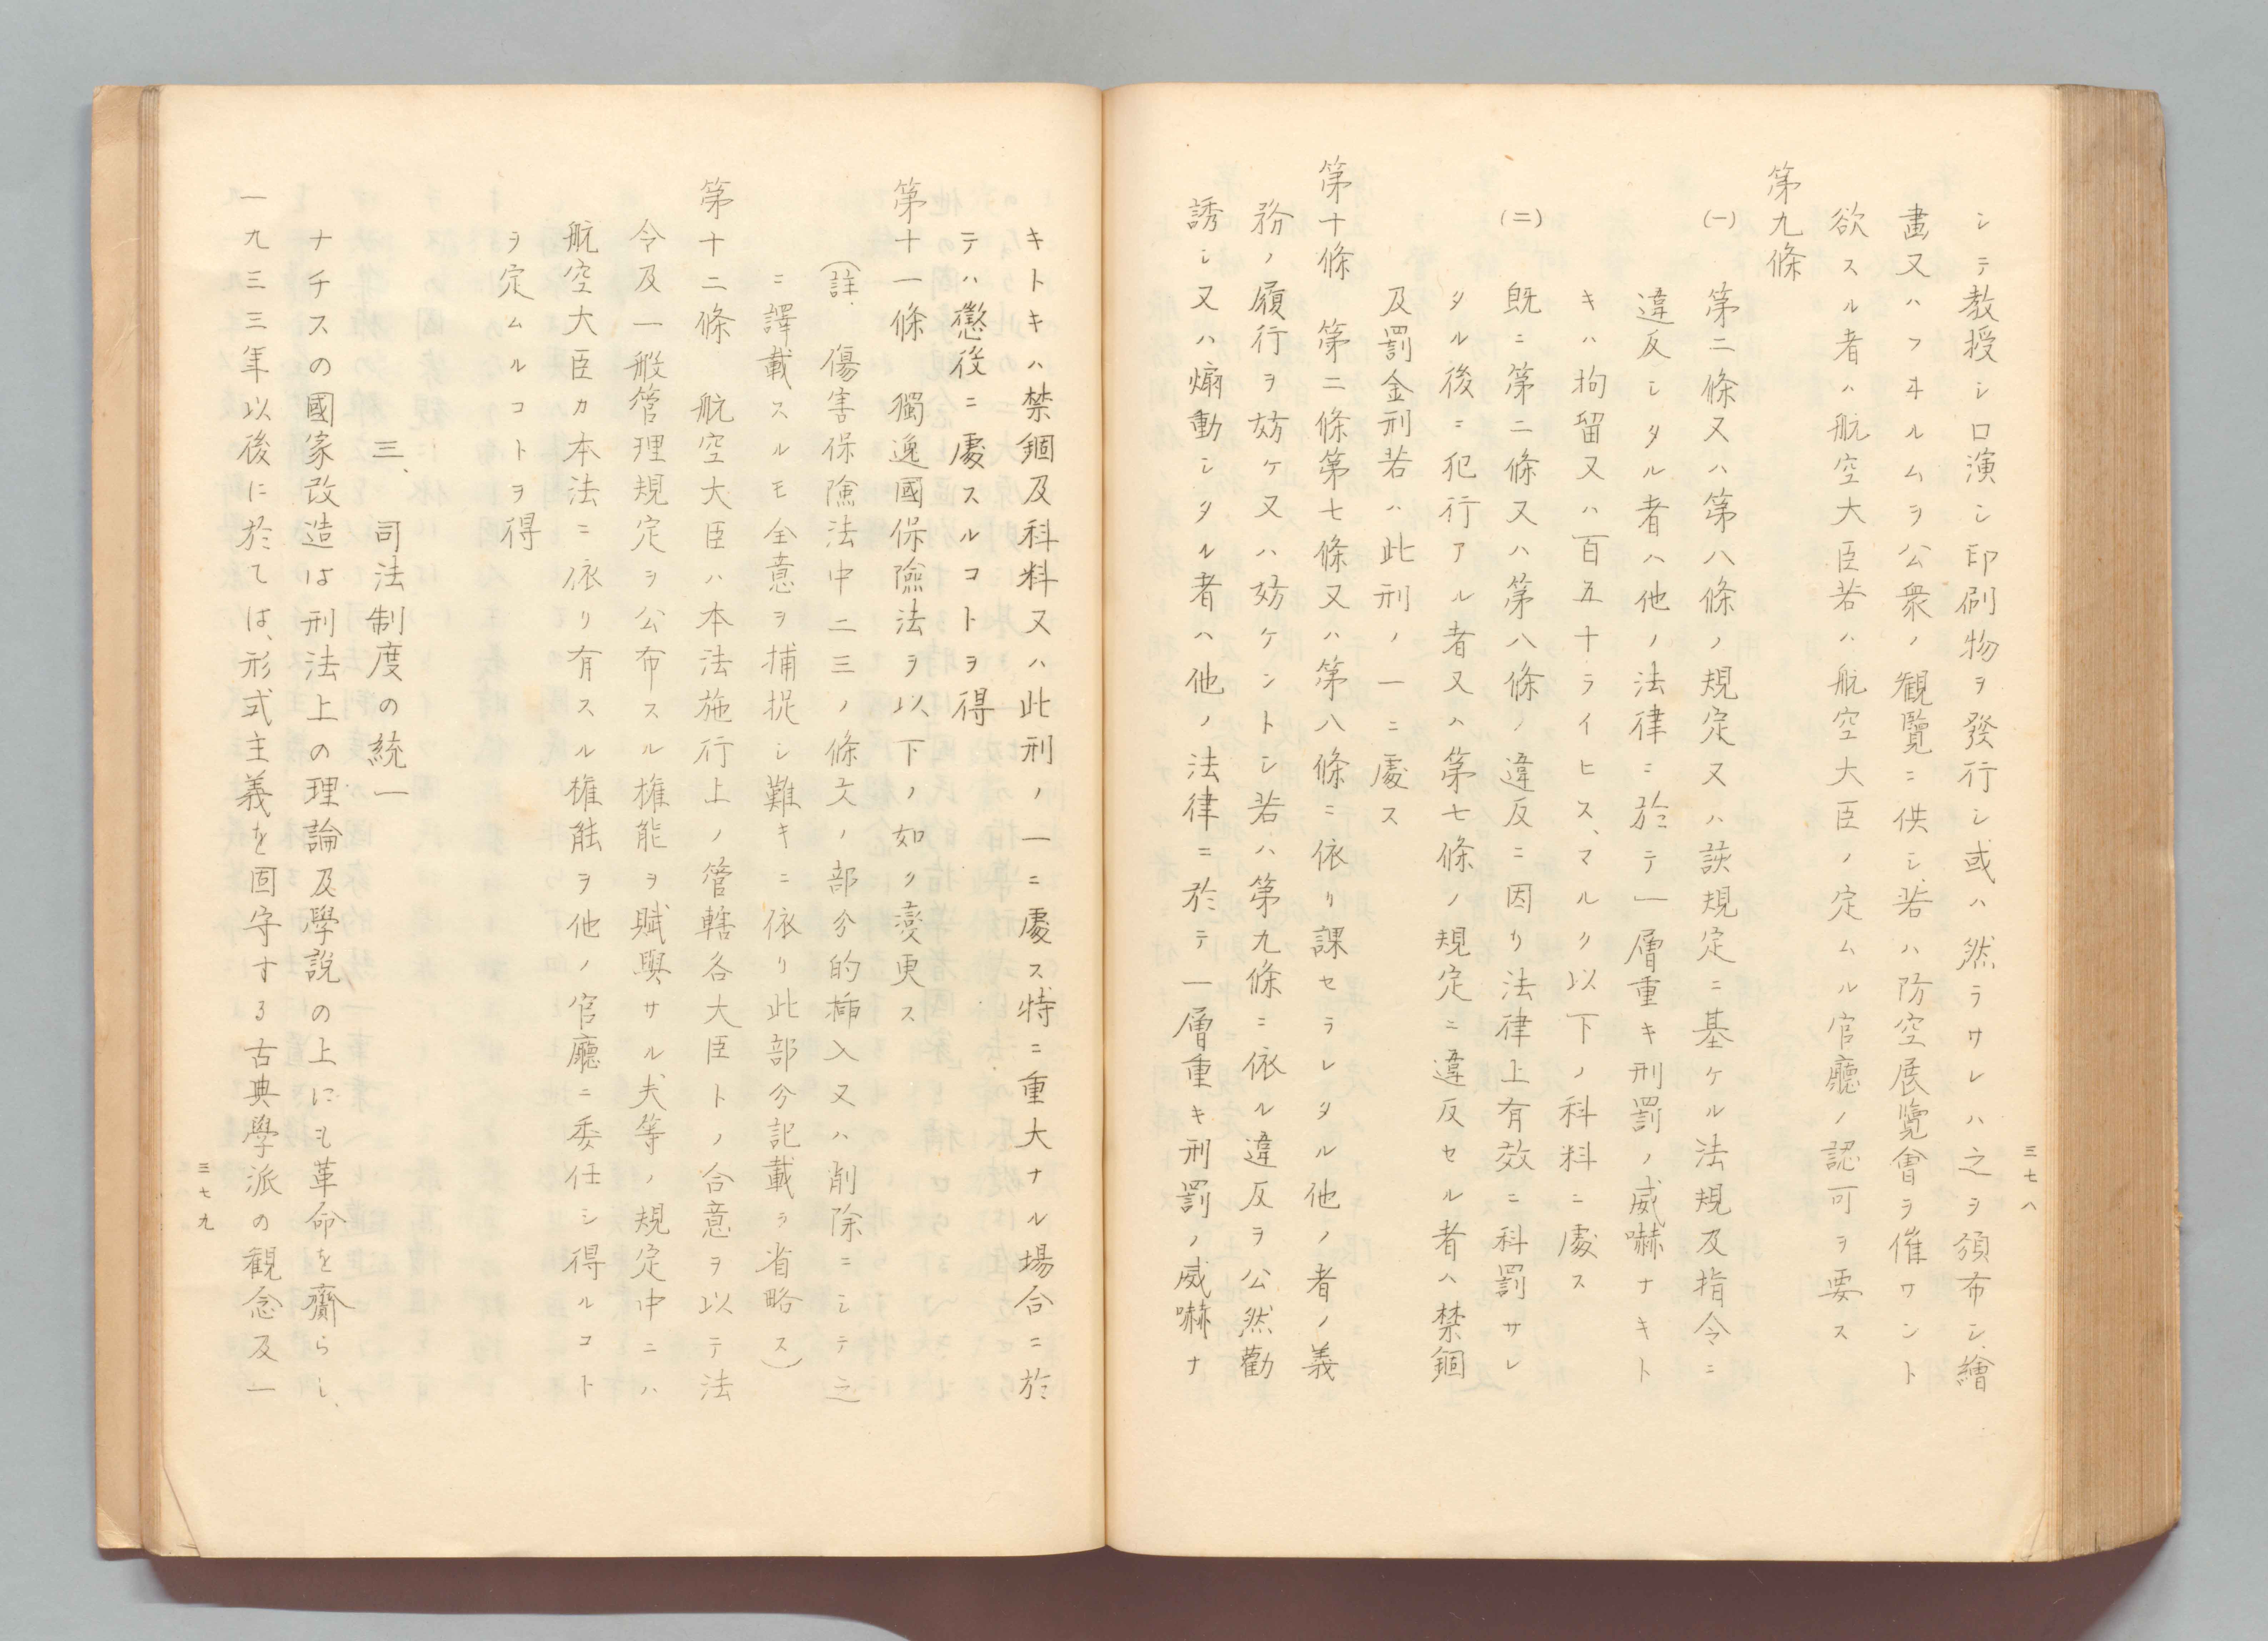 三七八
シテ教授シ口演シ印刷物ヲ發行シ或ハ然ラサレハ之ヲ頒布シ、繪
畫又ハフヰルムヲ公衆ノ観覽ニ供シ、若ハ防空展覽會ヲ催サント
欲スル者ハ航空大臣若ハ航空大臣ノ定ムル官廳ノ認可ヲ要ス
第九條
(一)　第二條又ハ第八條ノ規定又ハ該規定ニ基ケル法規及指令ニ
違反シタル者ハ他ノ法律ニ於テ一層重キ刑罰ノ威嚇ナキト
キハ拘留又ハ百五十ライヒス、マルク以下ノ科料ニ處ス
(二)　既ニ第二條又ハ第八條ノ違反ニ因リ法律上有效ニ科罰サレ
タル後ニ犯行アル者又ハ第七條ノ規定ニ違反セル者ハ禁錮
及罰金刑若ハ此刑ノ一ニ處ス
第十條　第二條第七條又ハ第八條ニ依リ課セラレタル他ノ者ノ義
務ノ履行ヲ妨ケ又ハ妨ケントシ若ハ第九條ニ依ル違反ヲ公然勸
誘シ又ハ煽動シタル者ハ他ノ法律ニ於テ一層重キ刑罰ノ威嚇ナ
キトキハ禁錮及科料又ハ此刑ノ一ニ處ス特ニ重大ナル場合ニ於
テハ懲役ニ處スルコトヲ得
第十一條　獨逸國保險法ヲ以下ノ如ク變更ス
(註.　傷害保險法中二三ノ條文ノ部分的挿入又ハ削除ニシテ之
ニ譯載スルモ全意ヲ捕捉シ難キニ依リ此部分記載ヲ省略ス)
第十二條　航空大臣ハ本法施行上ノ管轄各大臣トノ合意ヲ以テ法
令及一般管理規定ヲ公布スル権能ヲ賦與サル夫等ノ規定中ニハ
航空大臣カ本法ニ依リ有スル権能ヲ他ノ官廳ニ委任シ得ルコト
ヲ定ムルコトヲ得
三、　司法制度の統一
ナチスの國家改造は刑法上の理論及學説の上にも革命を齎らし、
一九三三年以後に於ては、形式主義を固守する古典學派の観念及一
三七九